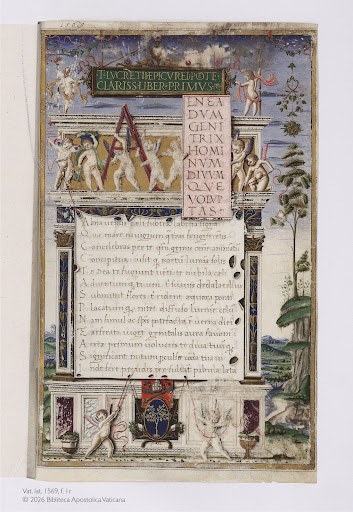 T·LVCRETII EPICVREI POETE
CLARISS LIBER PRIMVS
A
ENEA
DVM
GENI
TRIX
HOMI
NVM
DIVVM
QVE
VOLVP
TAS
Alma uenus cæli subter labentia signa
Quæ mare nauigerum quæ terras frugiferentis
Concelebras per te qm̄ genus omne animantū
Concipitur uisitq; exortū lumina solis
Te Dea te fugiunt uenti te nubila cæli
Aduentumq; tuum t' suauis dædala tellus
Submittit flores t' rident æquora ponti
Placatumq; nitet diffuso lumine cælum
Nam simul ac sp̄es patefacta ē uerna diei
Et reserata uiget genitalis aura fauoni
Aeriæ primum uolucres te diua tuūq;
Significant initum perculsæ corda tua ui
Inde feræ pecudes persultāt pabula læta
Vat. lat. 1569, f. 1r
© 2026 Biblioteca Apostolica Vaticana